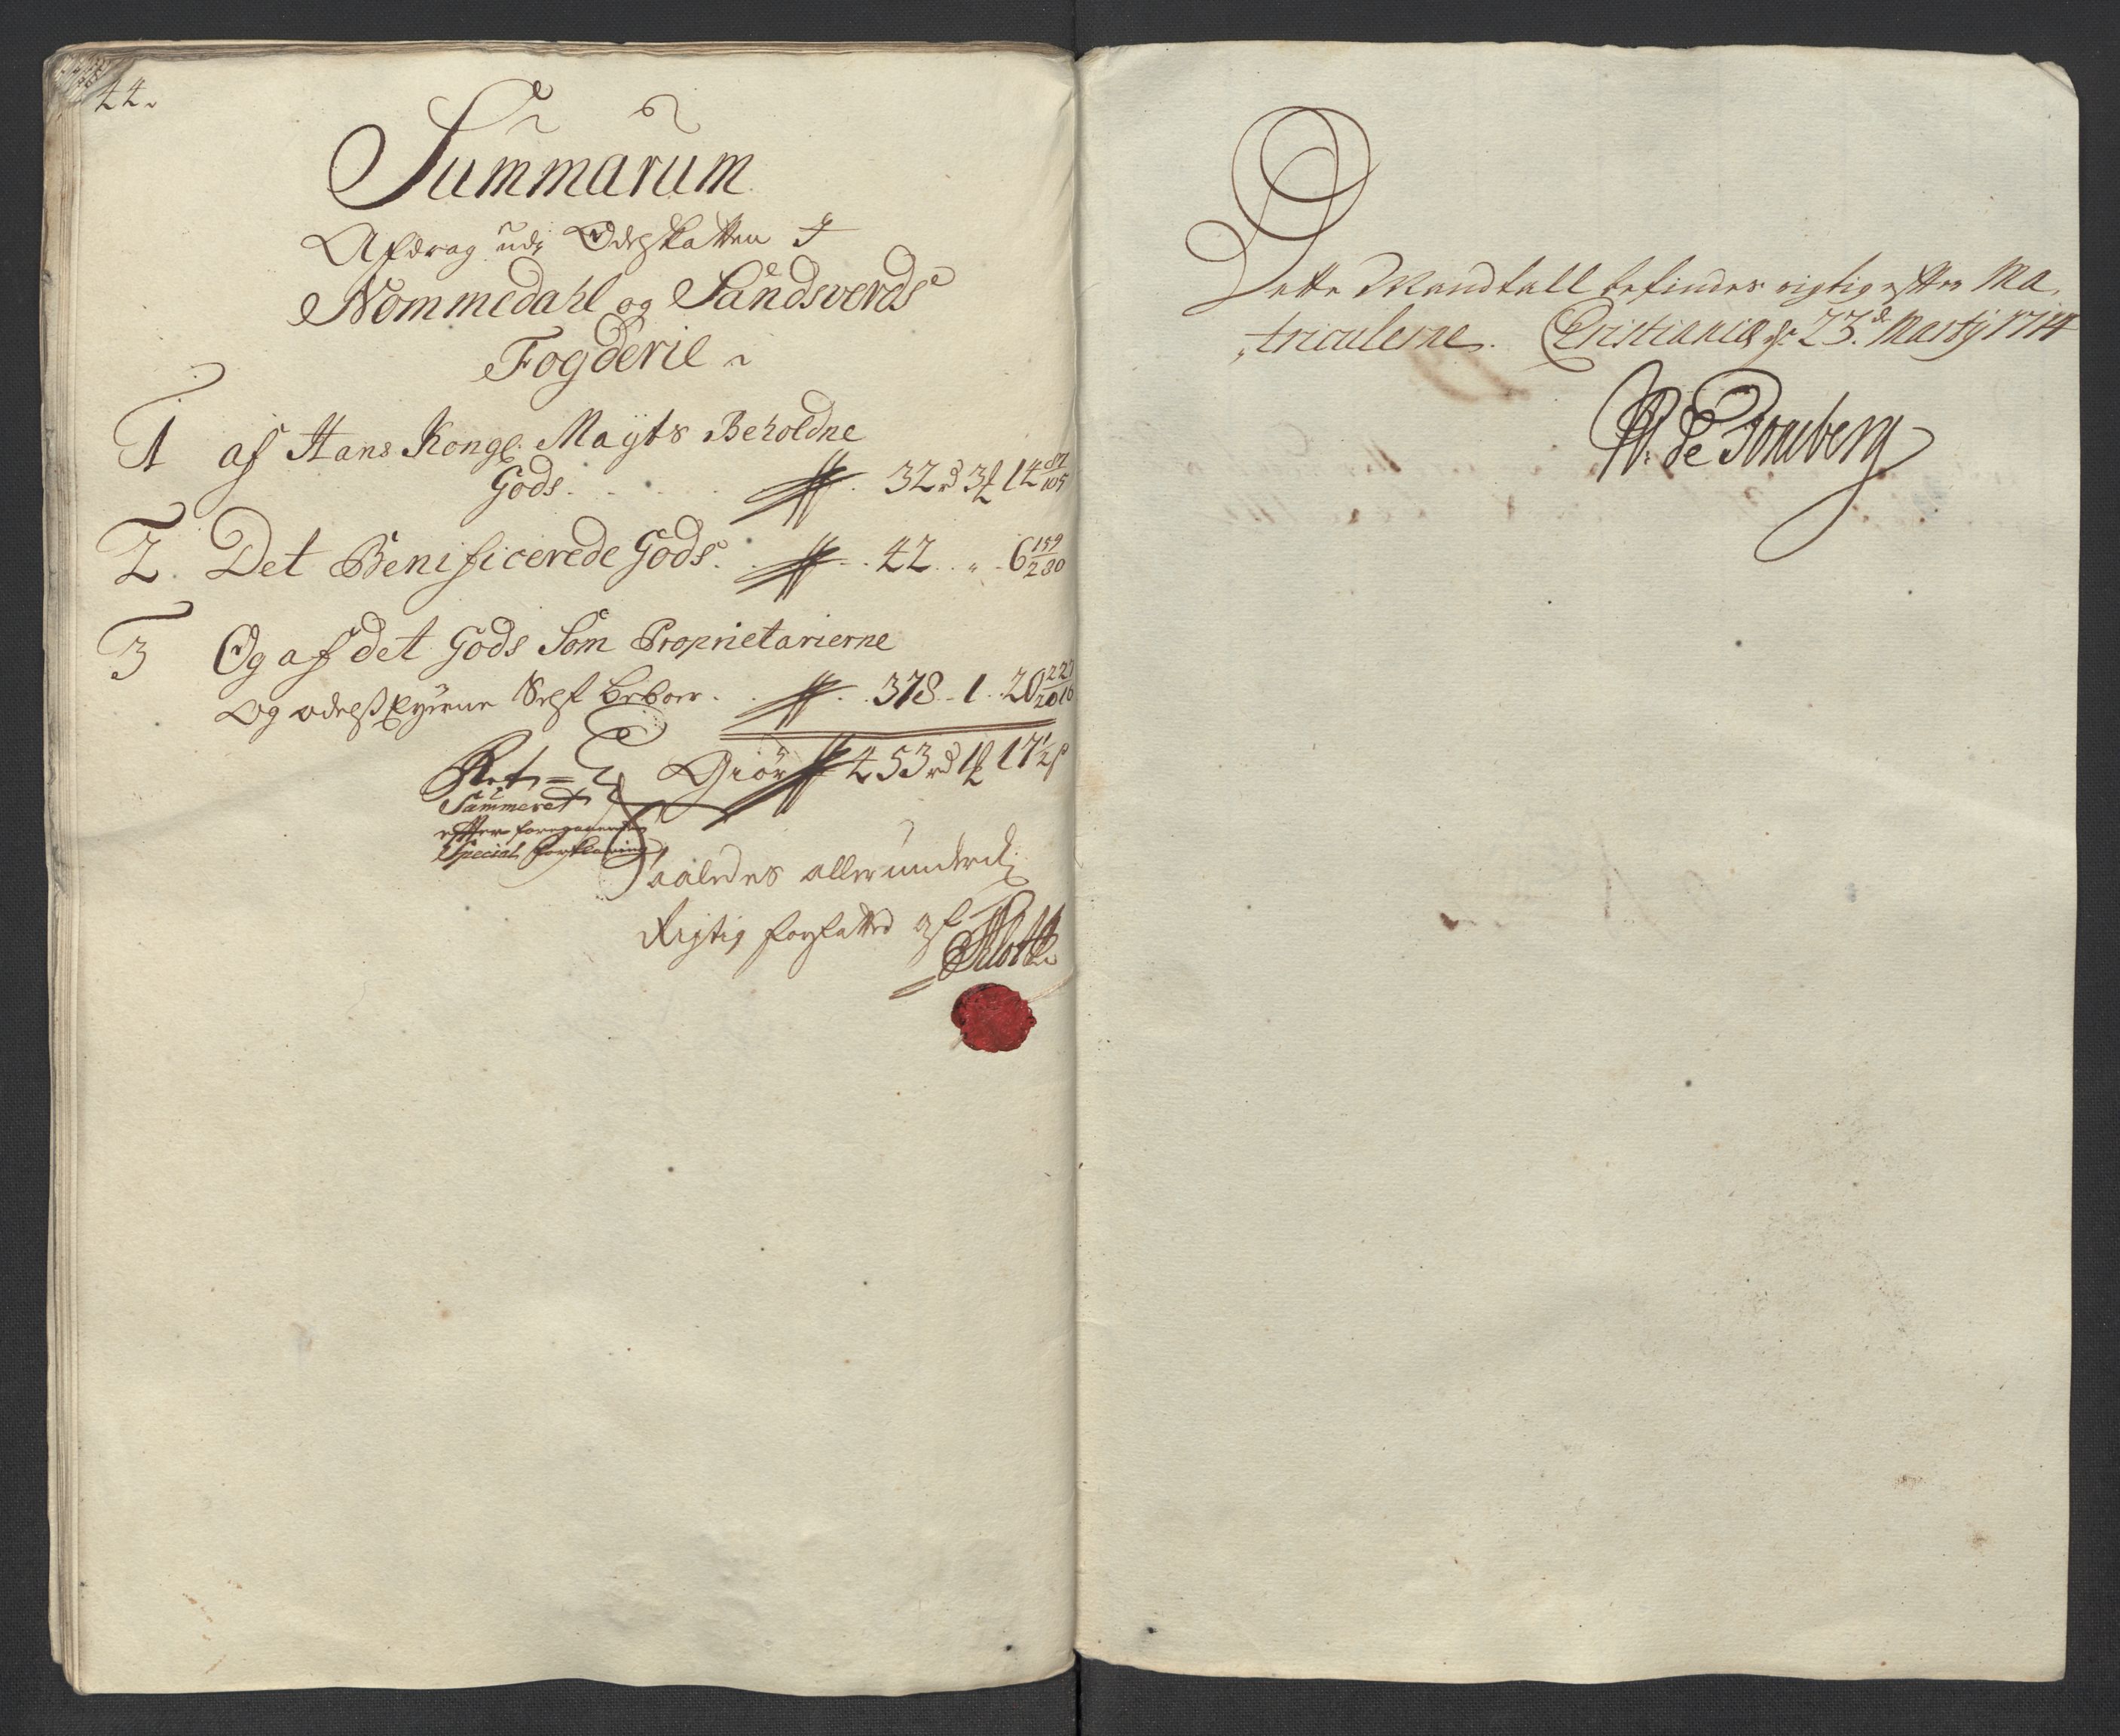 44.
Summarum
Afdrag udi Ødeskatten I
Nommedahl og Sandsverds
Fogderie
1 af Hans Kongl. Mayts Beholdne
Gods. . . . . 32 rd 3 ß 14 87/105
2. Det Benificerede Gods. . . 42. „ - 6 159/280
3 Og af det Gods Som Proprietarierne
Og odelß Eyerne Self beboer. . . 378 - 1. 20 227/2016
Giør 453 rd 1 ß 17 1/2 ß
Ret =
Summeret
efter foregaaende
Special forklaring
Saaledes allerunderd:
Rigtig forfatted af
Dette Mandtall befindes rigtig efter Ma,
,triculerne. Christiania d: 23.de Marty 1714